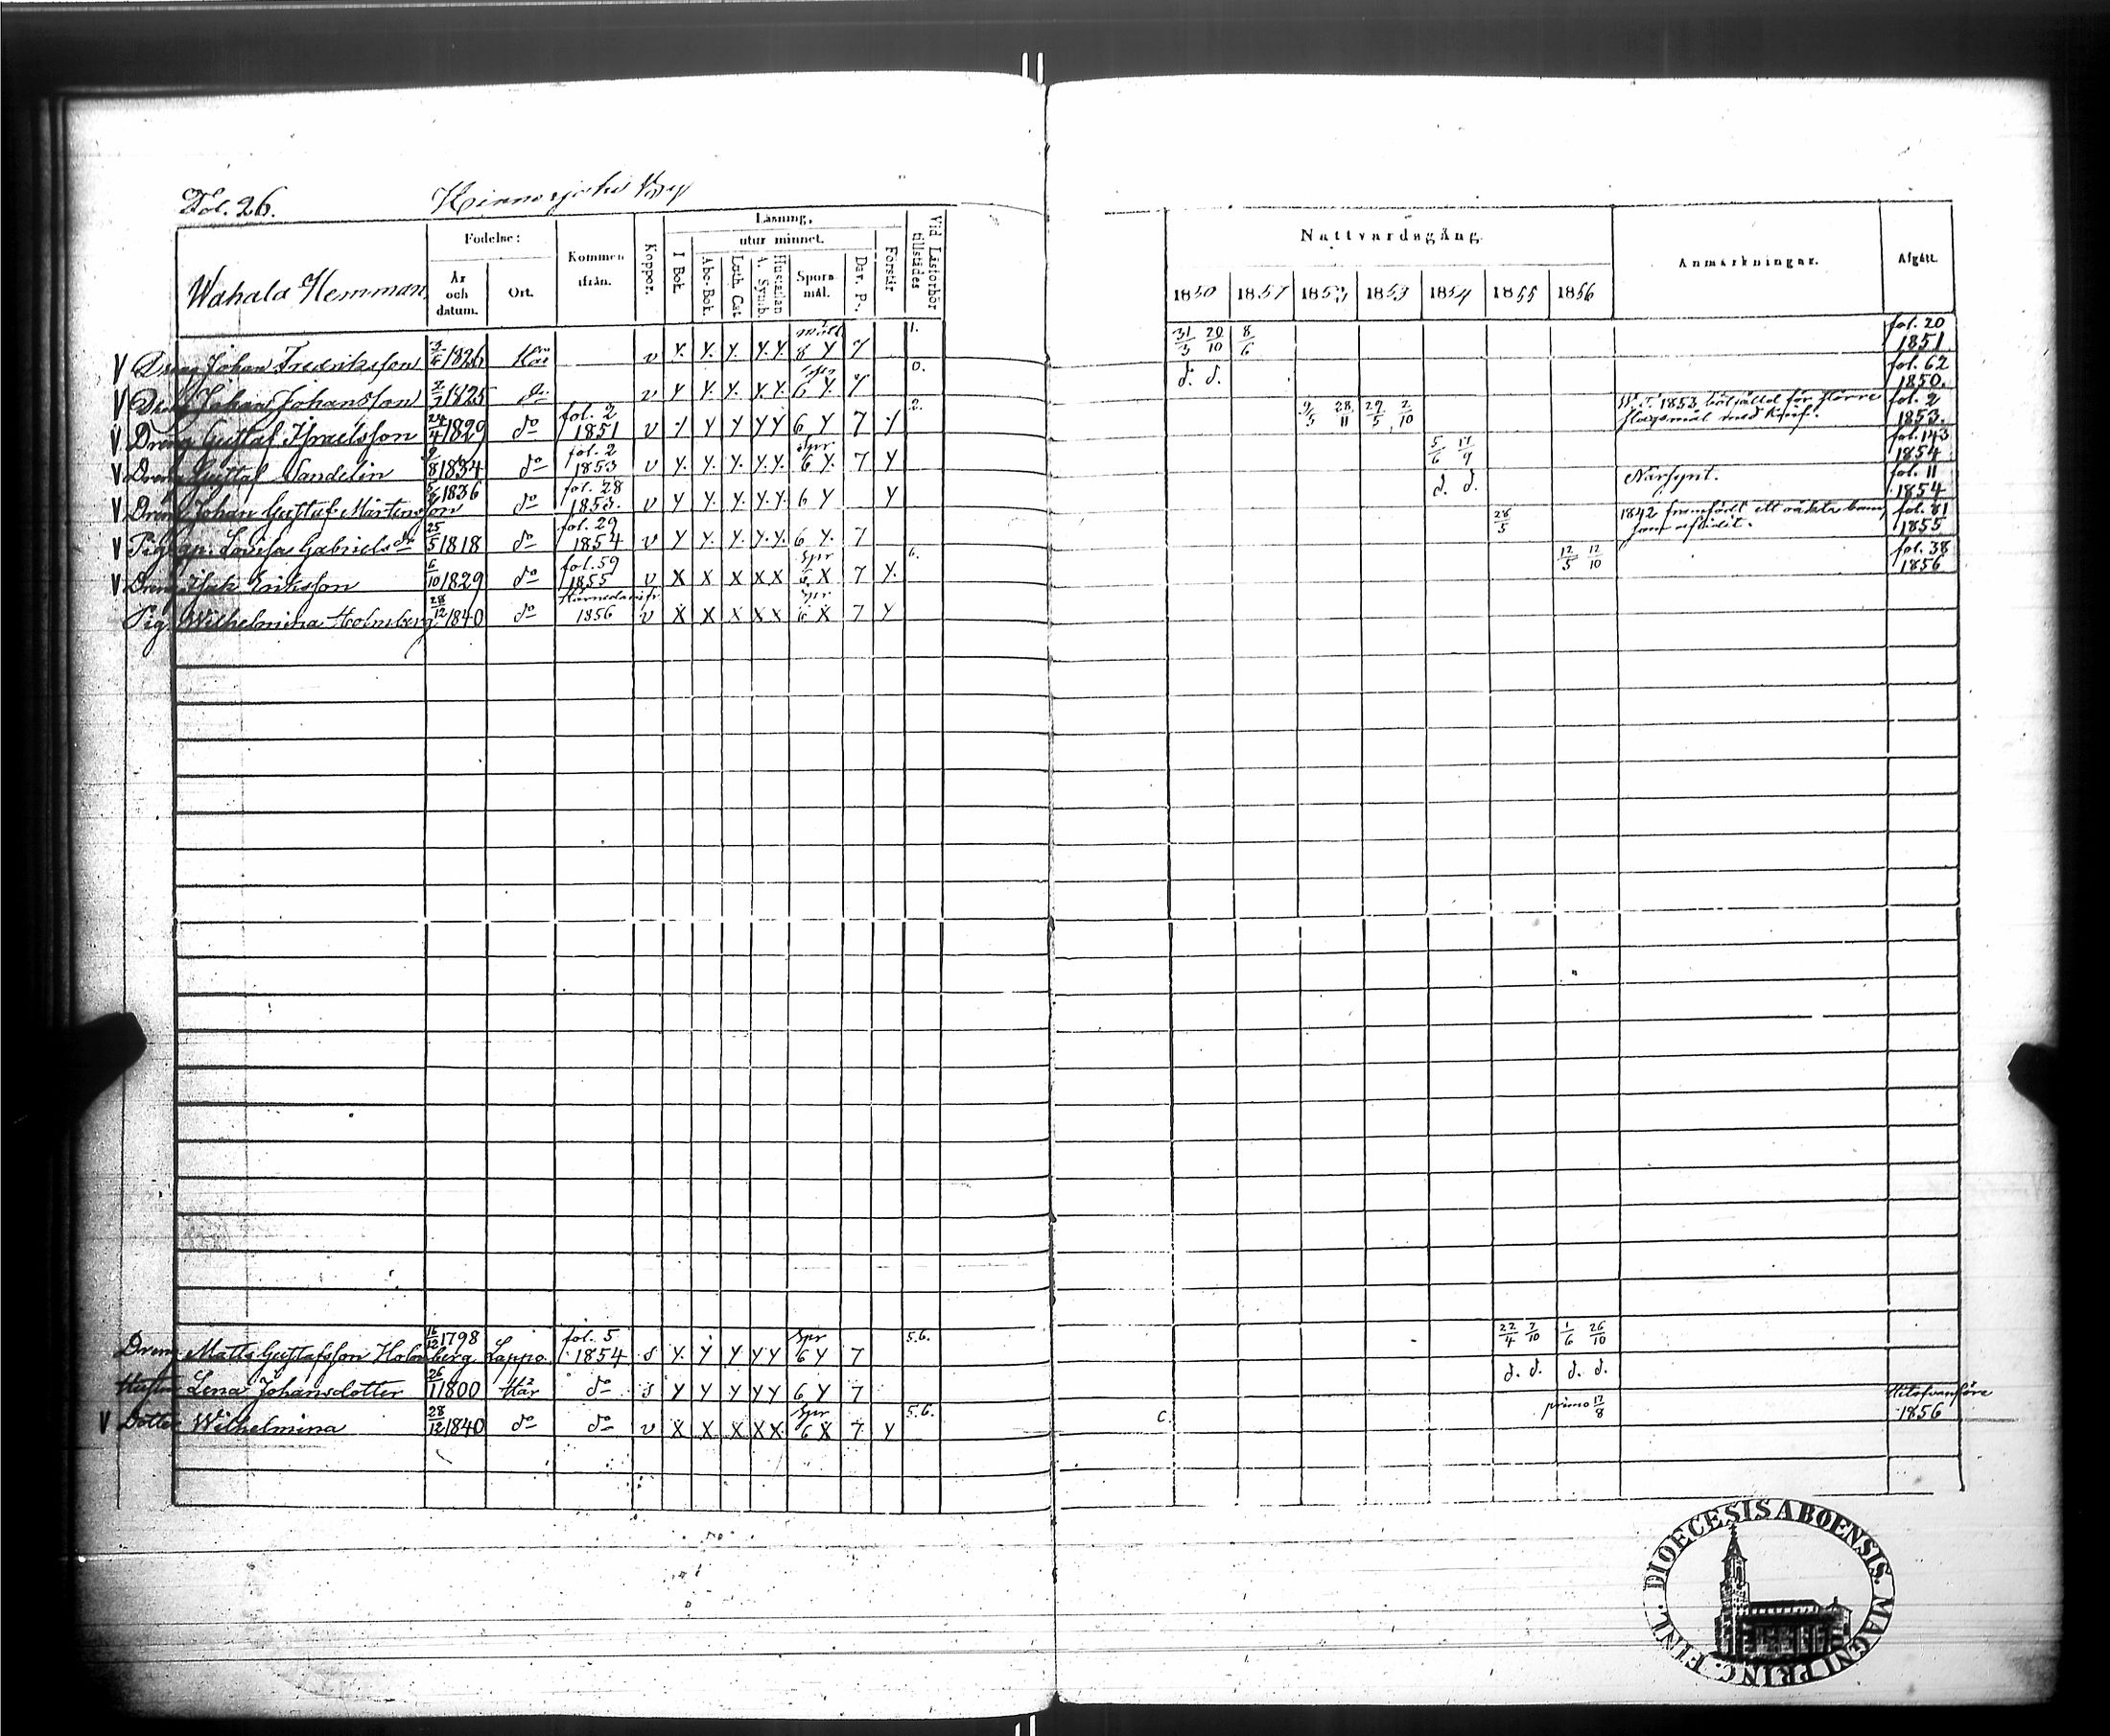 Fol. 26.
Wahala Hemman,
Födelse:
År och datum.
Ort.
Kommen ifrån.
Koppor.
Läsning,
utur minnet.
I Bok.
Abc-Bok.
Luth. Cat.
A. Symb.
Hustaflan
Spörsmål.
Dav. Ps.
Förstår
Vid Läsförhör tillstädes
Nattvardsgång
1850 1851 1852 1853 1854 1855 1856
Anmärkningar.
Afgått.
V Dreng Johan Fredriksson 3/4 1826 Här v Y. Y. Y. Y. Y 8 Y 7 1. 31/3 20/10 8/6 fol. 20 1851
V Dreng Johan Johansson 2/7 1825 do v Y Y. Y. Y. Y. 6 Y. 7 0. d. d. fol. 62 1850.
V Dreng Gustaf Israelsson 24/4 1829 do fol. 2 1851 v Y Y Y Y Y 6 Y 7 Y 2. 9/5 28/11 29/5 2/10 1853 bötfälld för större slagsmål med knif. fol. 2 1853.
V Dreng Gustaf Sandelin 9/8 1834 do fol. 2 1853 v Y. Y. Y. Y. Y. Spr 6 Y. 7 Y 5/6 17/9 fol. 143 1854
V Dreng Johan Gustaf Mårtensson 1836 do fol. 28 1853. v Y Y. Y. Y. Y 6 Y Y d. d. Närsynt. fol. 11 1854
V Pig. Lovisa Gabrielsdr 25/5 1818 do fol. 29 1854 v Y Y. Y. Y. Y. 6 Y. 7 28/5 1842 framfödt ett oäkta barn, som aflidit. fol. 81 1855
V Dreng Isak Eriksson 6/10 1829 do fol. 59 1855 v X X X X X Spr 6 X 7 Y. 6. 12/5 12/10 fol. 38 1856
Pig. Wilhelmina Holmberg 28/12 1840 do 1856 v X X X X X Spr 6 X 7 Y
Dreng Matts Gustafsson Holmberg 16/12 1798 Lappo. fol. 5 1854 s Y. Y Y. Y Y Spr 6 Y 7 5.6. 22/4 2/10 1/6 26/10
Hustru Lena Johansdotter 26/1 1800 Här do s Y Y Y Y Y 6 Y 7 d. d. d. d.
V Dotter Wilhelmina 28/12 1840 do do v X X. X X X. Spr 6 X 7 Y 5.6. C. primo 17/8 1856
DIOECESIS ABOENSIS. MAGNI PRINC. FINL.